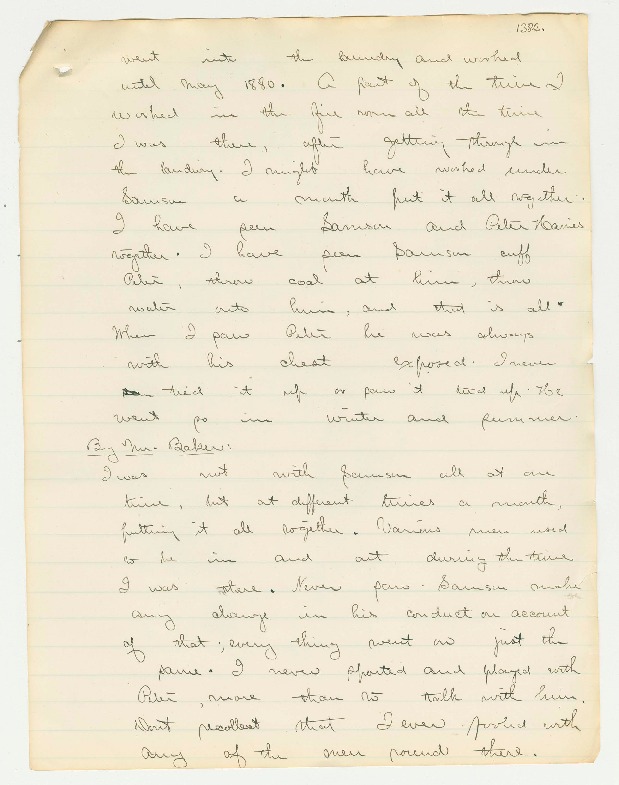 1382.
went into the laundry and worked
until May 1880. A part of the time I
worked in the fire room all the time
I was there, after getting through in
the laundry. I might have worked under
Samson a month put it all together.
I have seen Samson and Peter Haines
together. I have seen Samson cuff
Peter, throw coal at him, throw
water onto him, and that is all.
When I saw Peter he was always
with his chest exposed. I never
tied it up or saw it tied up. He
went so in winter and summer.
By Mr. Baker:
I was not with Samson all at one
time, but at different times a month,
putting it all together. Various men used
to be in and out during the time
I was there. Never saw Samson make
any change in his conduct on account
of that; every thing went on just the
same. I never sported and played with
Peter, more than to talk with him.
Don't recollect that I ever fooled with
any of the men round there.